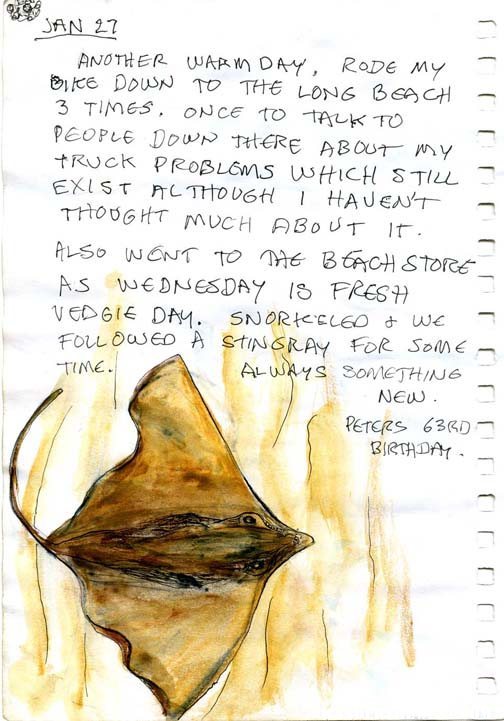 JAN 27
ANOTHER WARM DAY, RODE MY
BIKE DOWN TO THE LONG BEACH
3 TIMES. ONCE TO TALK TO
PEOPLE DOWN THERE ABOUT MY
TRUCK PROBLEMS WHICH STILL
EXIST ALTHOUGH I HAVEN'T
THOUGHT MUCH ABOUT IT.
ALSO WENT TO THE BEACH STORE
AS WEDNESDAY IS FRESH
VEDGIE DAY. SNORKELED & WE
FOLLOWED A STINGRAY FOR SOME
TIME. ALWAYS SOMETHING
NEW.
PETERS 63RD
BIRTHDAY.